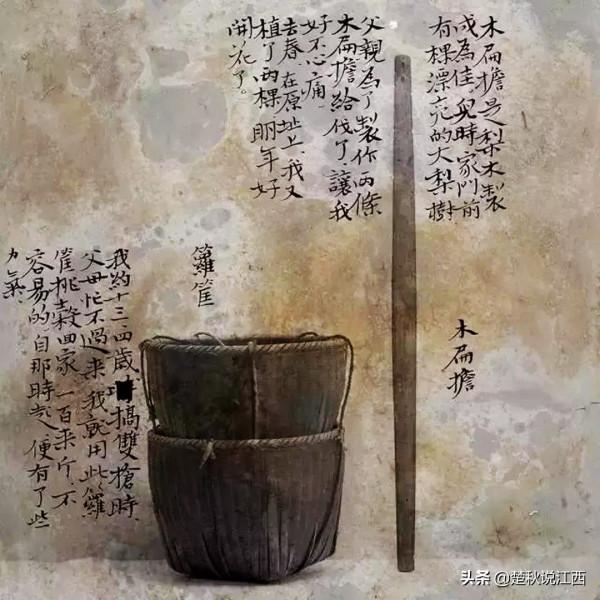 木扁擔是梨木製
成為佳。兒時家門前
有棵漂亮的大梨樹,
父親為了製作兩條
木扁擔給伐了,讓我
好不心痛。
去春,在原址上,我又
植了兩棵,明年好
開花了。
木扁擔
籮筐
我約十三、四歲,搞雙搶時,
父母忙不過來,我就用此籮
筐挑穀回家,一百來斤,不
容易的,自那時起,便有了些
力氣。
头条 @楚秋说江西